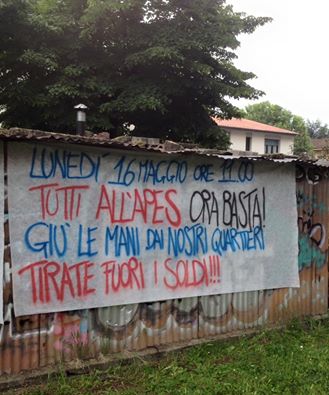 LUNEDÍ 16 MAGGIO ORE 11.00
TUTTI ALL'APES ORA BASTA!
GIÙ LE MANI DAI NOSTRI QUARTIERI
TIRATE FUORI I SOLDI!!!